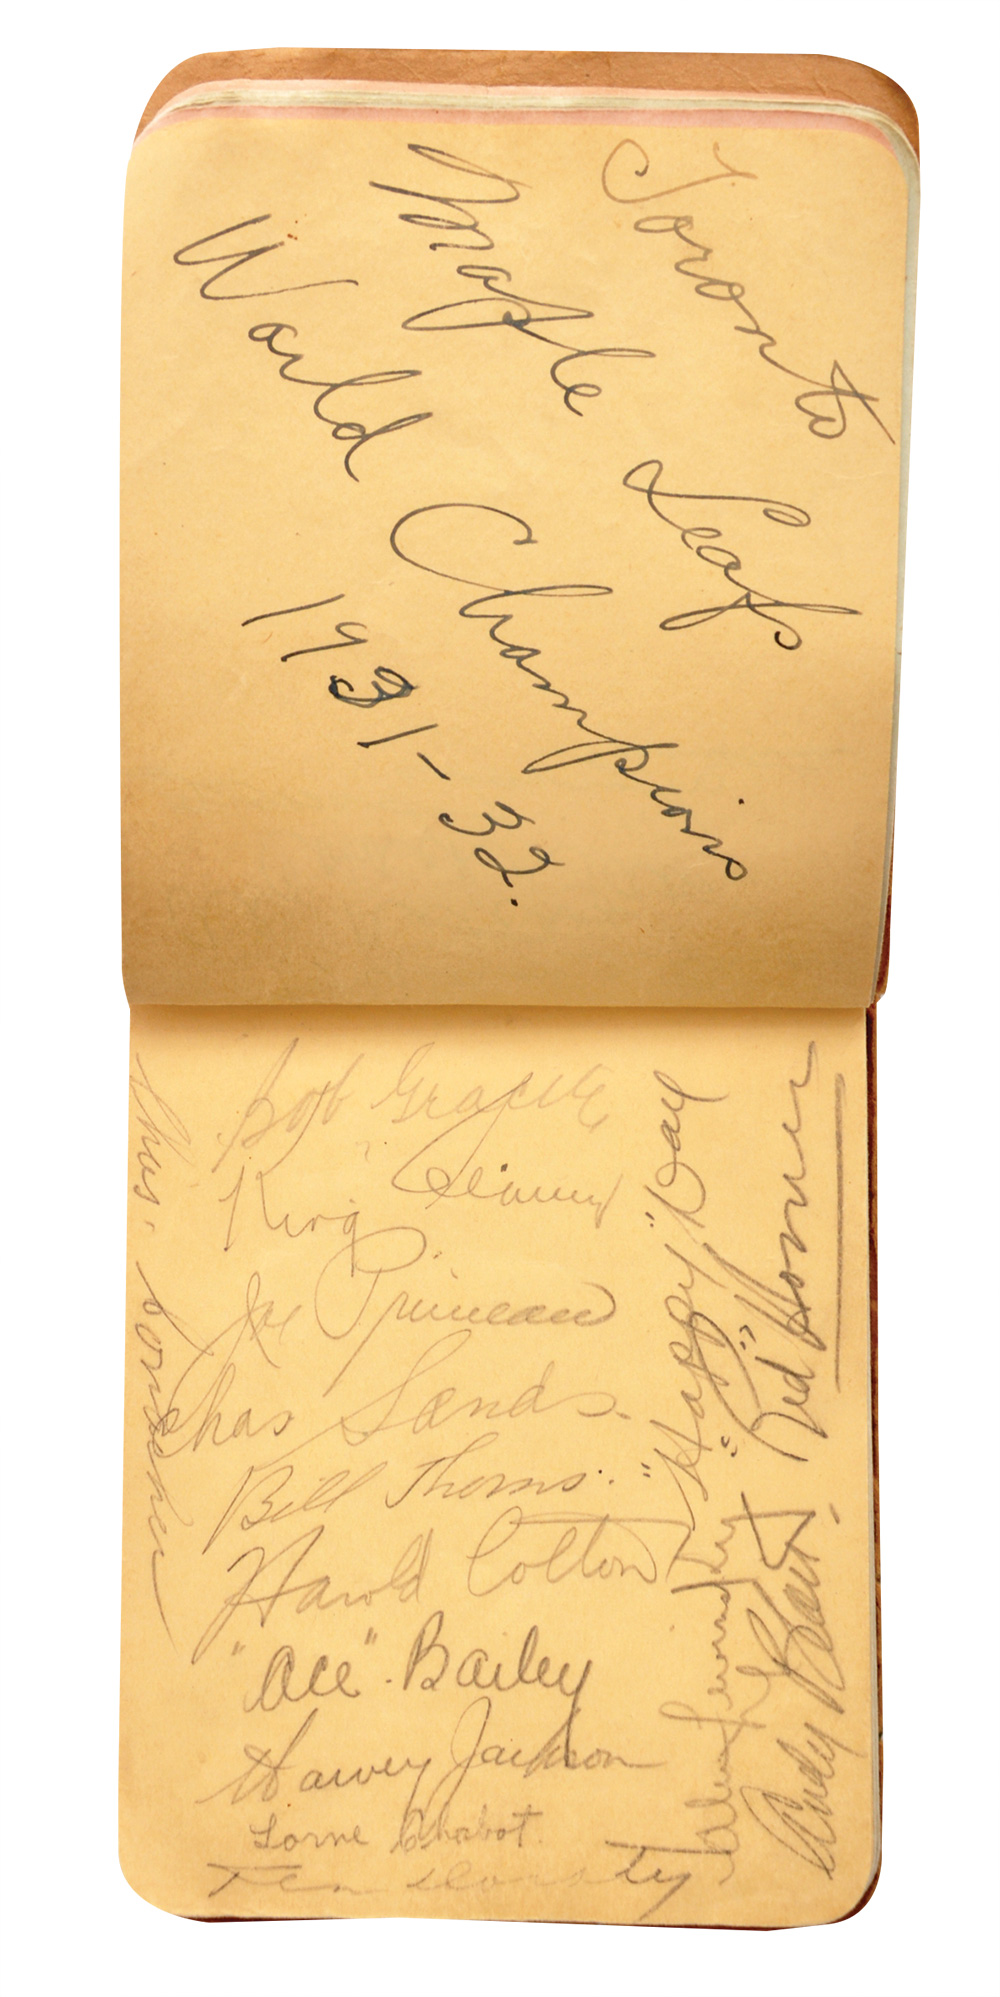 Toronto
Maple Leafs
World Champions
1931-32.
Bob Gracie
King Clancy
Joe Primeau
Chas Sands.
Bill Thoms.
Harold Cotton
"Ace" Bailey
Harvey Jackson
Lorne Chabot
"Happy" Day
"Red" Horner
Andy Blair.
Alex Levinsky
Chas. Conacher